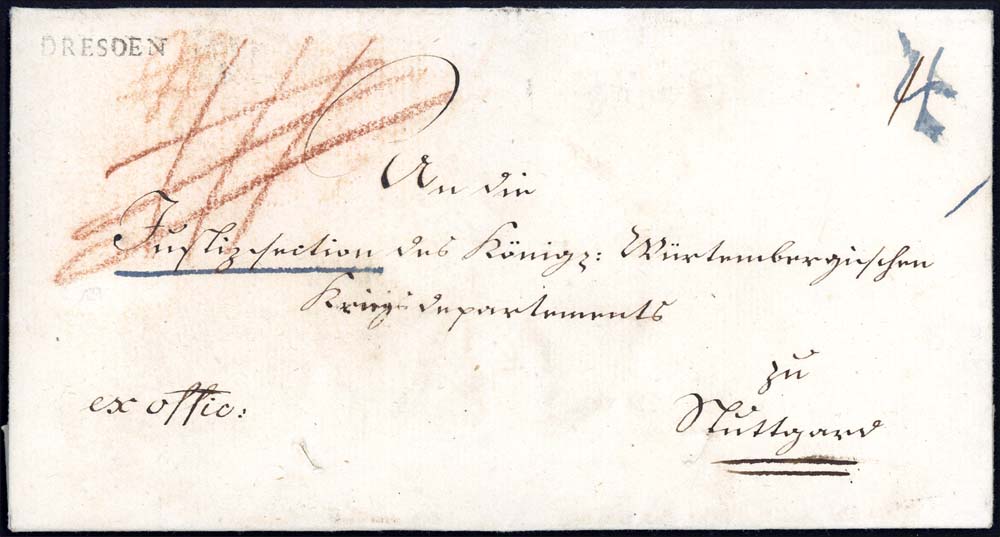 DRESDEN
4
An die
Justizsection des Königz: Würtembergischen
Kriegsdepartements
zu
ex offic:
Stuttgard